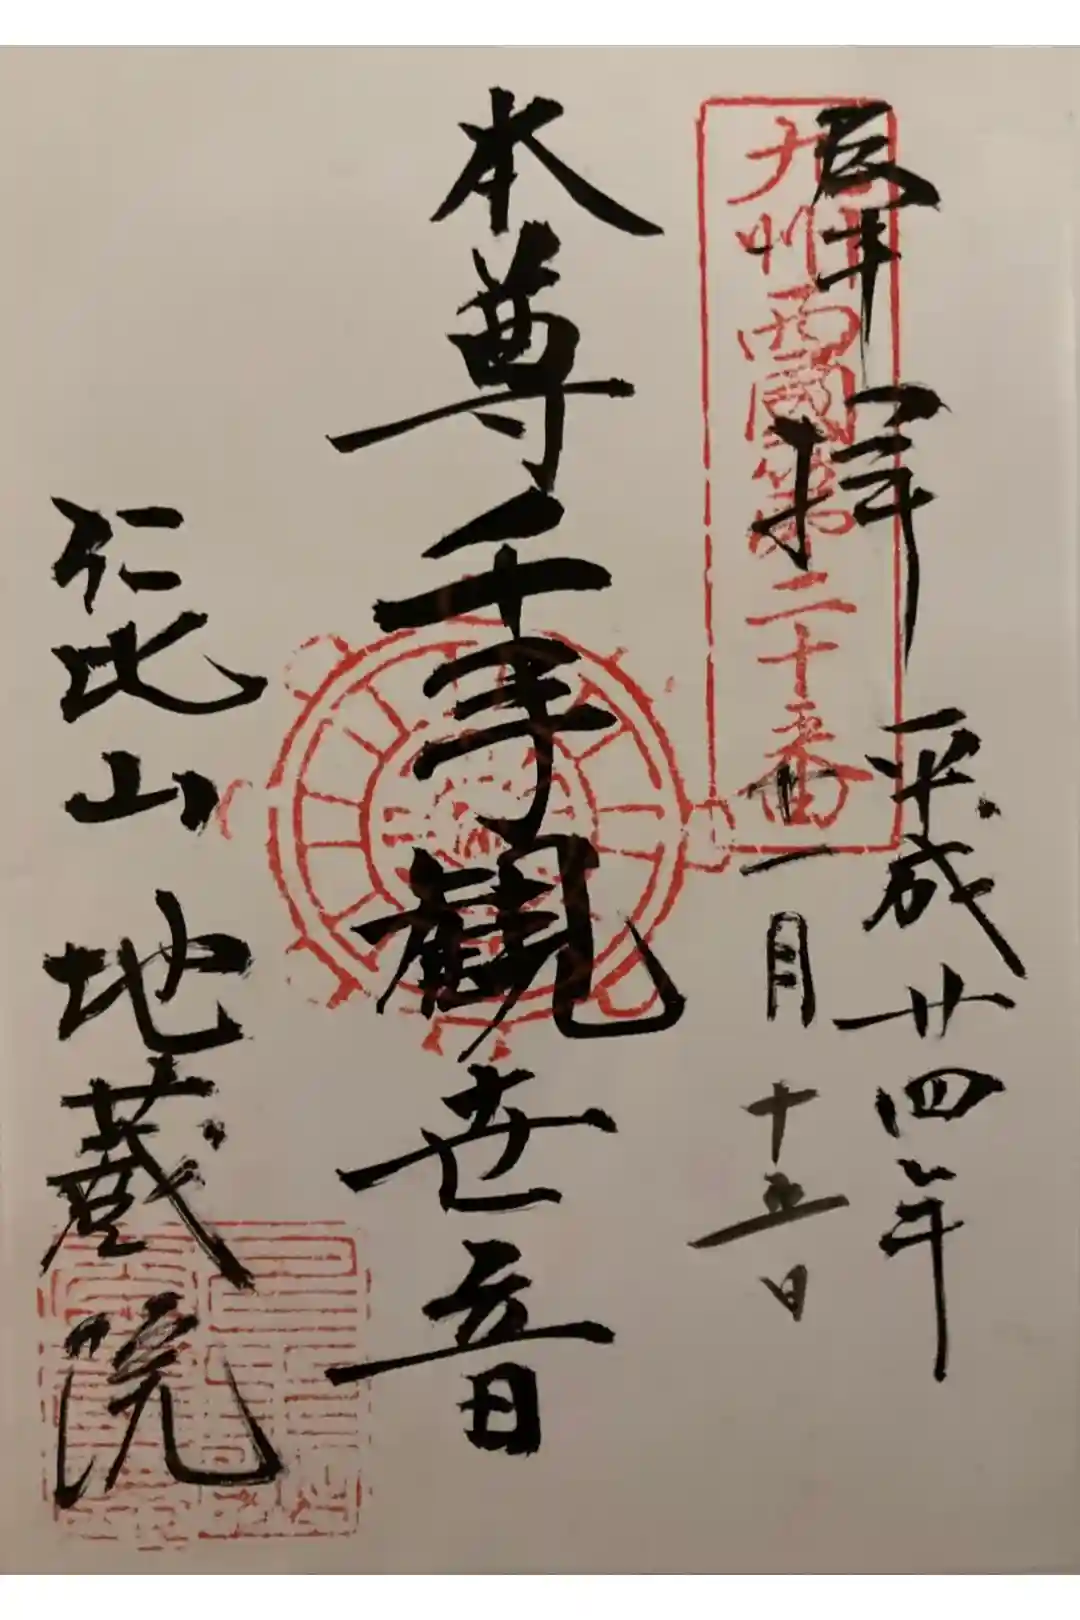 九州西國第二十番
辰年 拝
平成廿四年
十一月十五日
本尊千手観世音
仁比山 地蔵院